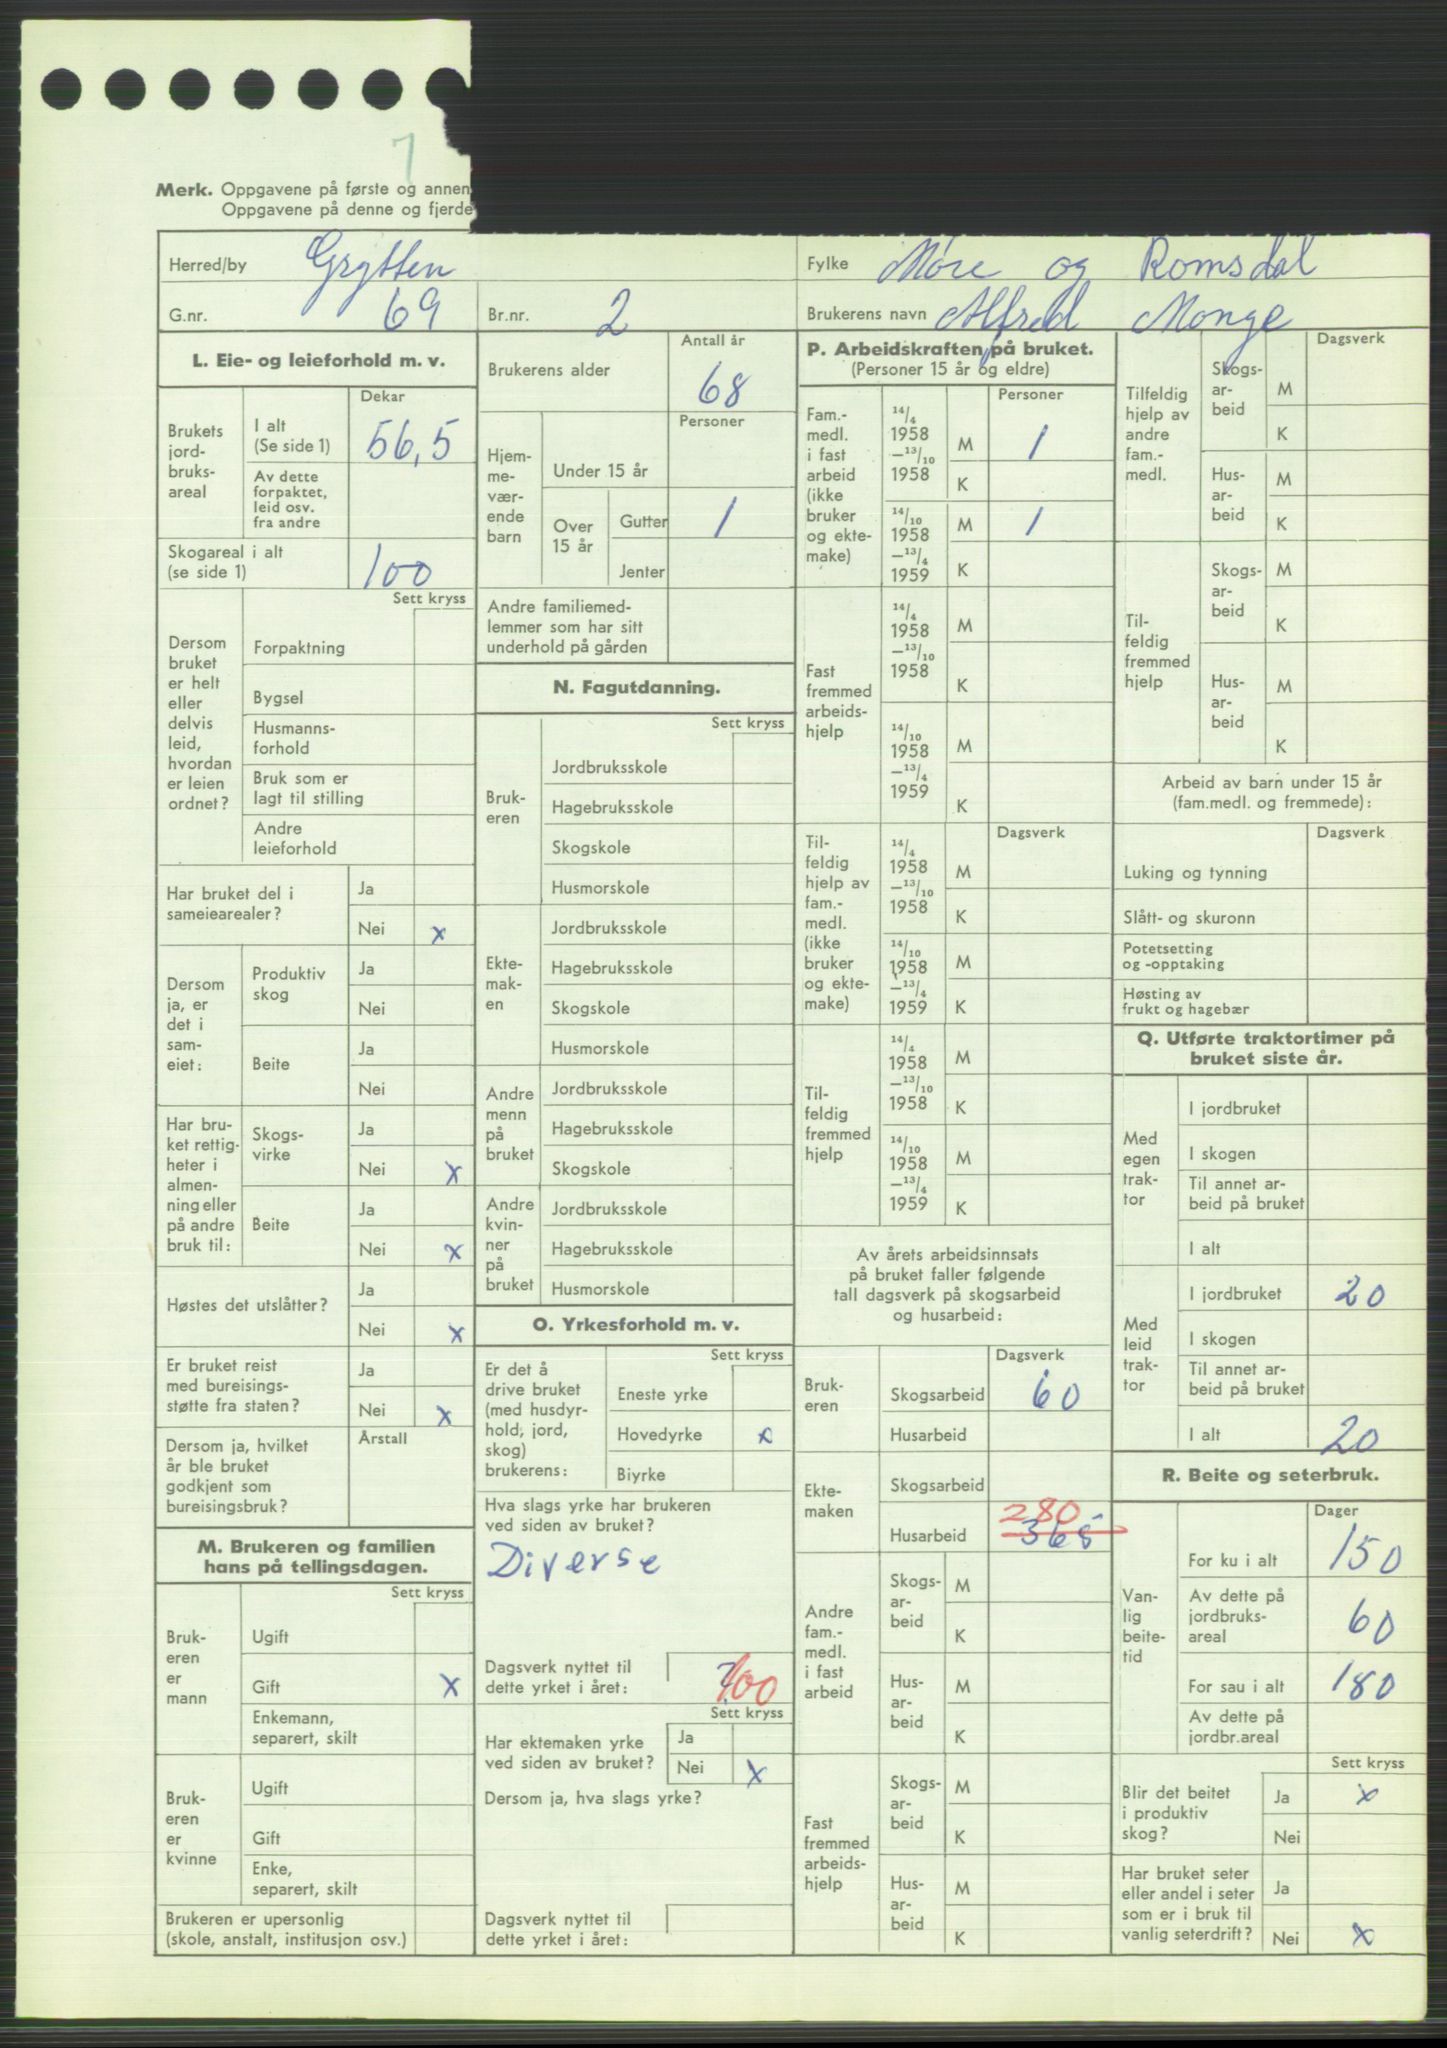 7
Merk. Oppgavene på første og annen
Oppgavene på denne og fjerde
Herred/by Grytten
Fylke Møre og Romsdal
G.nr. 69 Br.nr. 2
Brukerens navn Alfred Monge
L. Eie- og leieforhold m. v.
Dekar
Brukets jord-bruks-areal
I alt (Se side 1) 56,5
Av dette forpaktet, leid osv. fra andre
Skogareal i alt (se side 1) 100
Sett kryss
Dersom bruket er helt eller delvis leid, hvordan er leien ordnet?
Forpaktning
Bygsel
Husmanns-forhold
Bruk som er lagt til stilling
Andre leieforhold
Har bruket del i sameiearealer?
Ja
Nei x
Dersom ja, er det i sam-eiet:
Produktiv skog
Ja
Nei
Beite
Ja
Nei
Har bru-ket rettig-heter i almen-ning eller på andre bruk til:
Skogs-virke
Ja
Nei x
Beite
Ja
Nei x
Høstes det utslåtter?
Ja
Nei x
Er bruket reist med bureisings-støtte fra staten?
Ja
Nei x
Dersom ja, hvilket år ble bruket godkjent som bureisingsbruk?
Årstall
M. Brukeren og familien hans på tellingsdagen.
Sett kryss
Bruk-eren er mann
Ugift
Gift x
Enkemann, separert, skilt
Bruk-eren er kvinne
Ugift
Gift
Enke, separert, skilt
Brukeren er upersonlig (skole, anstalt, institusjon osv.)
Antall år
Brukerens alder 68
Personer
Hjem-me-vær-ende barn
Under 15 år
Over 15 år
Gutter 1
Jenter
Andre familiemed-lemmer som har sitt underhold på gården
N. Fagutdanning.
Sett kryss
Bruk-eren
Jordbruksskole
Hagebruksskole
Skogskole
Husmorskole
Ekte-mak-en
Jordbruksskole
Hagebruksskole
Skogskole
Husmorskole
Andre menn på bruket
Jordbruksskole
Hagebruksskole
Skogskole
Andre kvin-ner på bruket
Jordbruksskole
Hagebruksskole
Husmorskole
O. Yrkesforhold m. v.
Sett kryss
Er det å drive bruket (med husdyr-hold, jord, skog) brukerens:
Eneste yrke
Hovedyrke x
Biyrke
Hva slags yrke har brukeren ved siden av bruket?
Diverse
Dagsverk nyttet til dette yrket i året: ? 100
Sett kryss
Har ektemaken yrke ved siden av bruket?
Ja
Nei x
Dersom ja, hva slags yrke?
Dagsverk nyttet til dette yrket i året:
P. Arbeidskraften på bruket.
(Personer 15 år og eldre)
Personer
Fam.-medl. i fast arbeid (ikke bruker og ekte-make)
14/4 1958 —13/10 1958
M 1
K
14/10 1958 —13/4 1959
M 1
K
Fast fremmed arbeids-hjelp
14/4 1958 —13/10 1958
M
K
14/10 1958 —13/4 1959
M
K
Dagsverk
Til-feldig hjelp av fam.-medl. (ikke bruker og ekte-make)
14/4 1958 —13/10 1958
M
K
14/10 1958 —13/4 1959
M
K
Til-feldig fremmed hjelp
14/4 1958 —13/10 1958
M
K
14/10 1958 —13/4 1959
M
K
Av årets arbeidsinnsats på bruket faller følgende tall dagsverk på skogsarbeid og husarbeid:
Dagsverk
Bruk-eren
Skogsarbeid 60
Husarbeid
Ekte-maken
Skogsarbeid
280
Husarbeid 365
Andre fam.-medl. i fast arbeid
Skogs-ar-beid
M
K
Hus-ar-beid
M
K
Fast fremmed arbeids-hjelp
Skogs-ar-beid
M
K
Hus-ar-beid
M
K
Dagsverk
Tilfeldig hjelp av andre fam.-medl.
Skogs-ar-beid
M
K
Hus-ar-beid
M
K
Til-feldig fremmed hjelp
Skogs-ar-beid
M
K
Hus-ar-beid
M
K
Arbeid av barn under 15 år (fam.medl. og fremmede):
Dagsverk
Luking og tynning
Slått- og skuronn
Potetsetting og -opptaking
Høsting av frukt og hagebær
Q. Utførte traktortimer på bruket siste år.
Med egen trak-tor
I jordbruket
I skogen
Til annet ar-beid på bruket
I alt
Med leid trak-tor
I jordbruket 20
I skogen
Til annet ar-beid på bruket
I alt 20
R. Beite og seterbruk.
Dager
Van-lig beite-tid
For ku i alt 150
Av dette på jordbruks-areal 60
For sau i alt 180
Av dette på jordbr.areal
Sett kryss
Blir det beitet i produktiv skog?
Ja x
Nei
Har bruket seter eller andel i seter som er i bruk til vanlig seterdrift?
Ja
Nei x